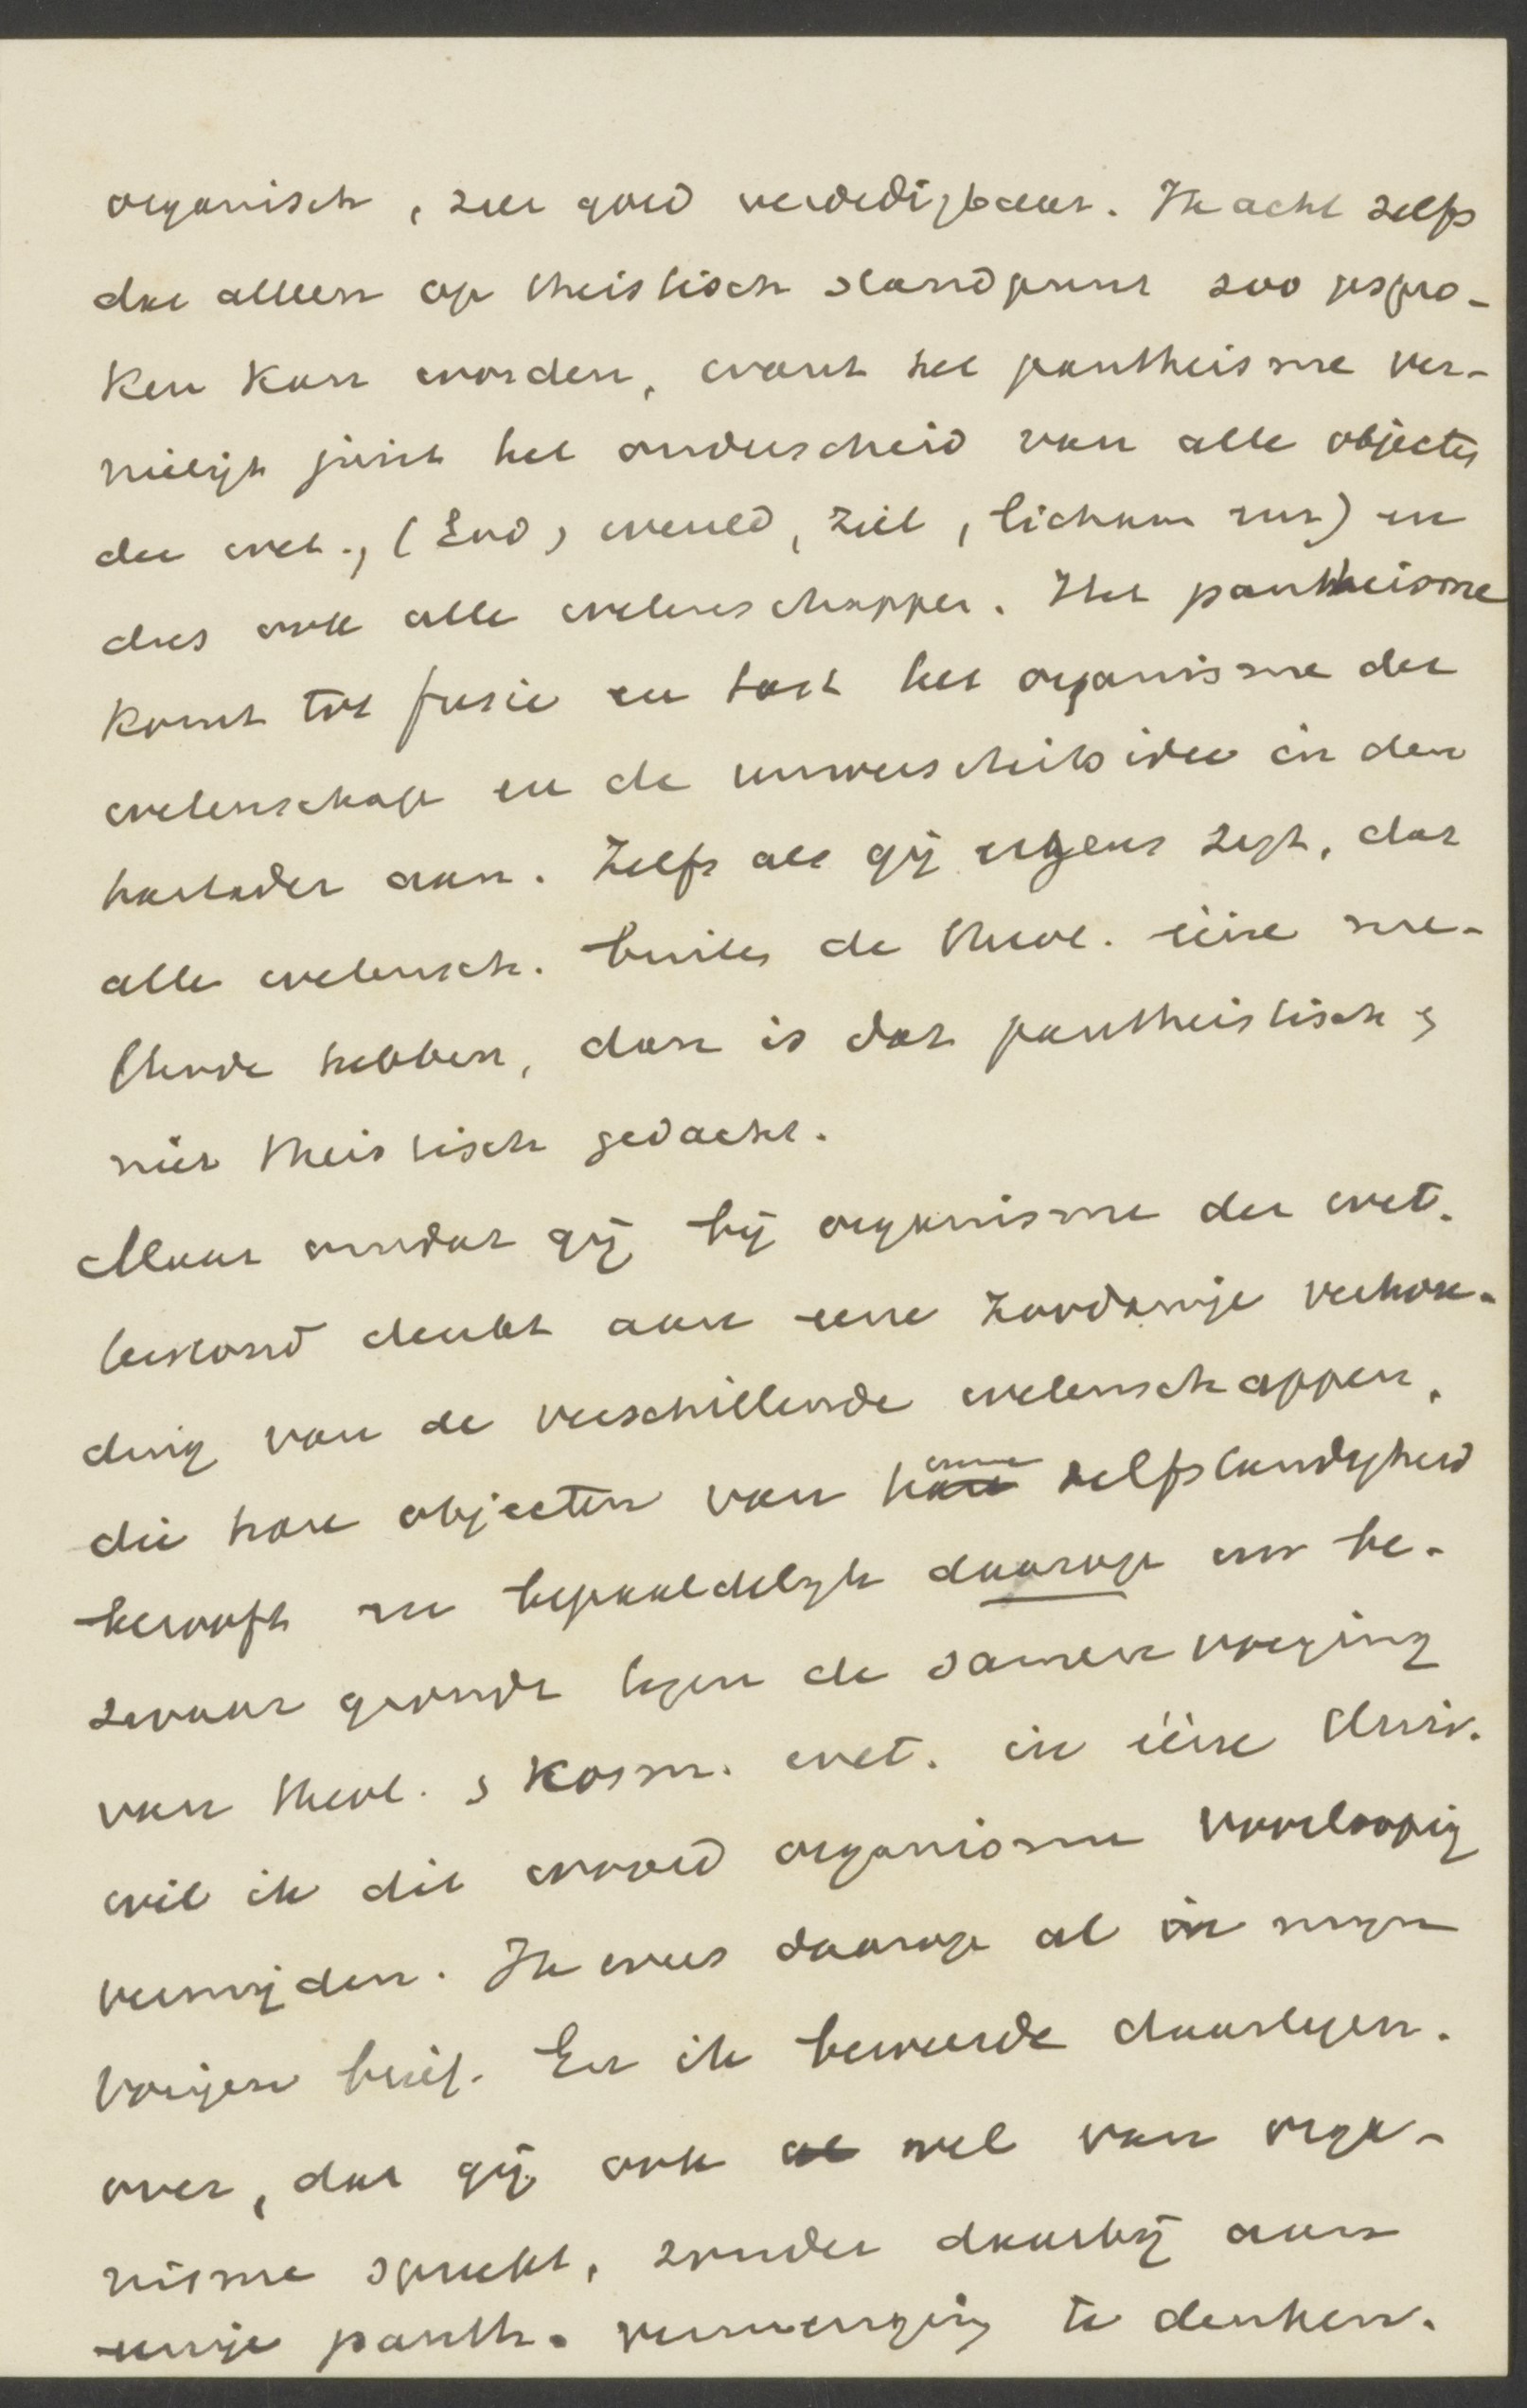 organisch, zeer goed verdedigbaar. Ik acht zelfs
dat alleen op theistisch standpunt zoo gespro-
ken kan worden, want het pantheisme ver-
nietigt juist het onderscheid van alle objecten
der wet., (God, wereld, ziel, lichaam enz) en
dus ook alle wetenschappen. Het pantheisme
komt tot fusie en tast het organisme der
wetenschap en de universiteitsidee in den
hartader aan. Zelfs als gij ergens zegt, dat
alle wetensch. buiten de theol. ééne me-
thode hebben, dan is dat pantheistisch &
niet theistisch gedacht.
Maar omdat gij bij organisme der wet.
terstond denkt aan eene zoodanige verhou-
ding van de verschillende wetenschappen,
die hare objecten van hare zelfstandigheid
berooft en bepaaldelijk daarop uw be-
zwaar grondt tegen de samenvoeging
van theol. & kosm. wet. in ééne Univ.
wil ik dit woord organisme voorloopig
vermijden. Ik wees daarop al in mijn
vorigen brief. En ik beweerde daartegen-
over, dat gij ook al wel van orga-
nisme spreekt, zonder daarbij aan
eenige panth. vermenging te denken.